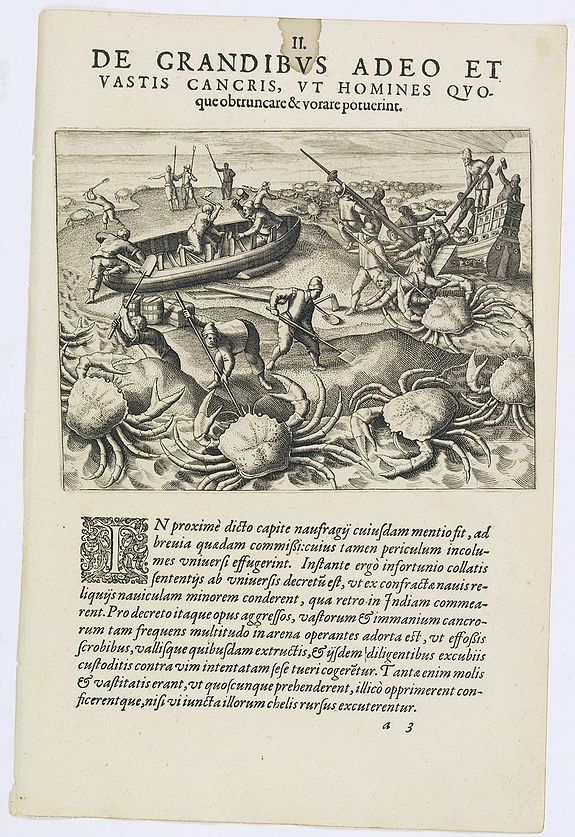 II.
DE GRANDIBVS ADEO ET
VASTIS CANCRIS, VT HOMINES QVO-
que obtruncare & vorare potuerint.
IN proximè dicto capite naufragij cuiusdam mentio fit, ad
brevia quædam commißi: cuius tamen periculum incolu-
mes vniversi effugerint. Instante ergò infortunio collatis
sententijs ab vniversis decretũ est, vt ex confractæ navis re-
liquijs naviculam minorem conderent, qua retro in Indiam commea-
rent. Pro decreto itaque opus aggressos, vastorum & immanium cancro-
rum tam frequens multitudo in arena operantes adorta est, vt effoßis
scrobibus, vallisque quibusdam extructis, & ijsdem diligentibus excubiis
custoditis contra vim intentatam sese tueri cogerẽtur. Tantæ enim molis
& vastitatis erant, vt quoscunque prehenderent, illicò opprimerent con-
ficerentque, nisi vi iuncta illorum chelis rursus excuterentur.
a 3